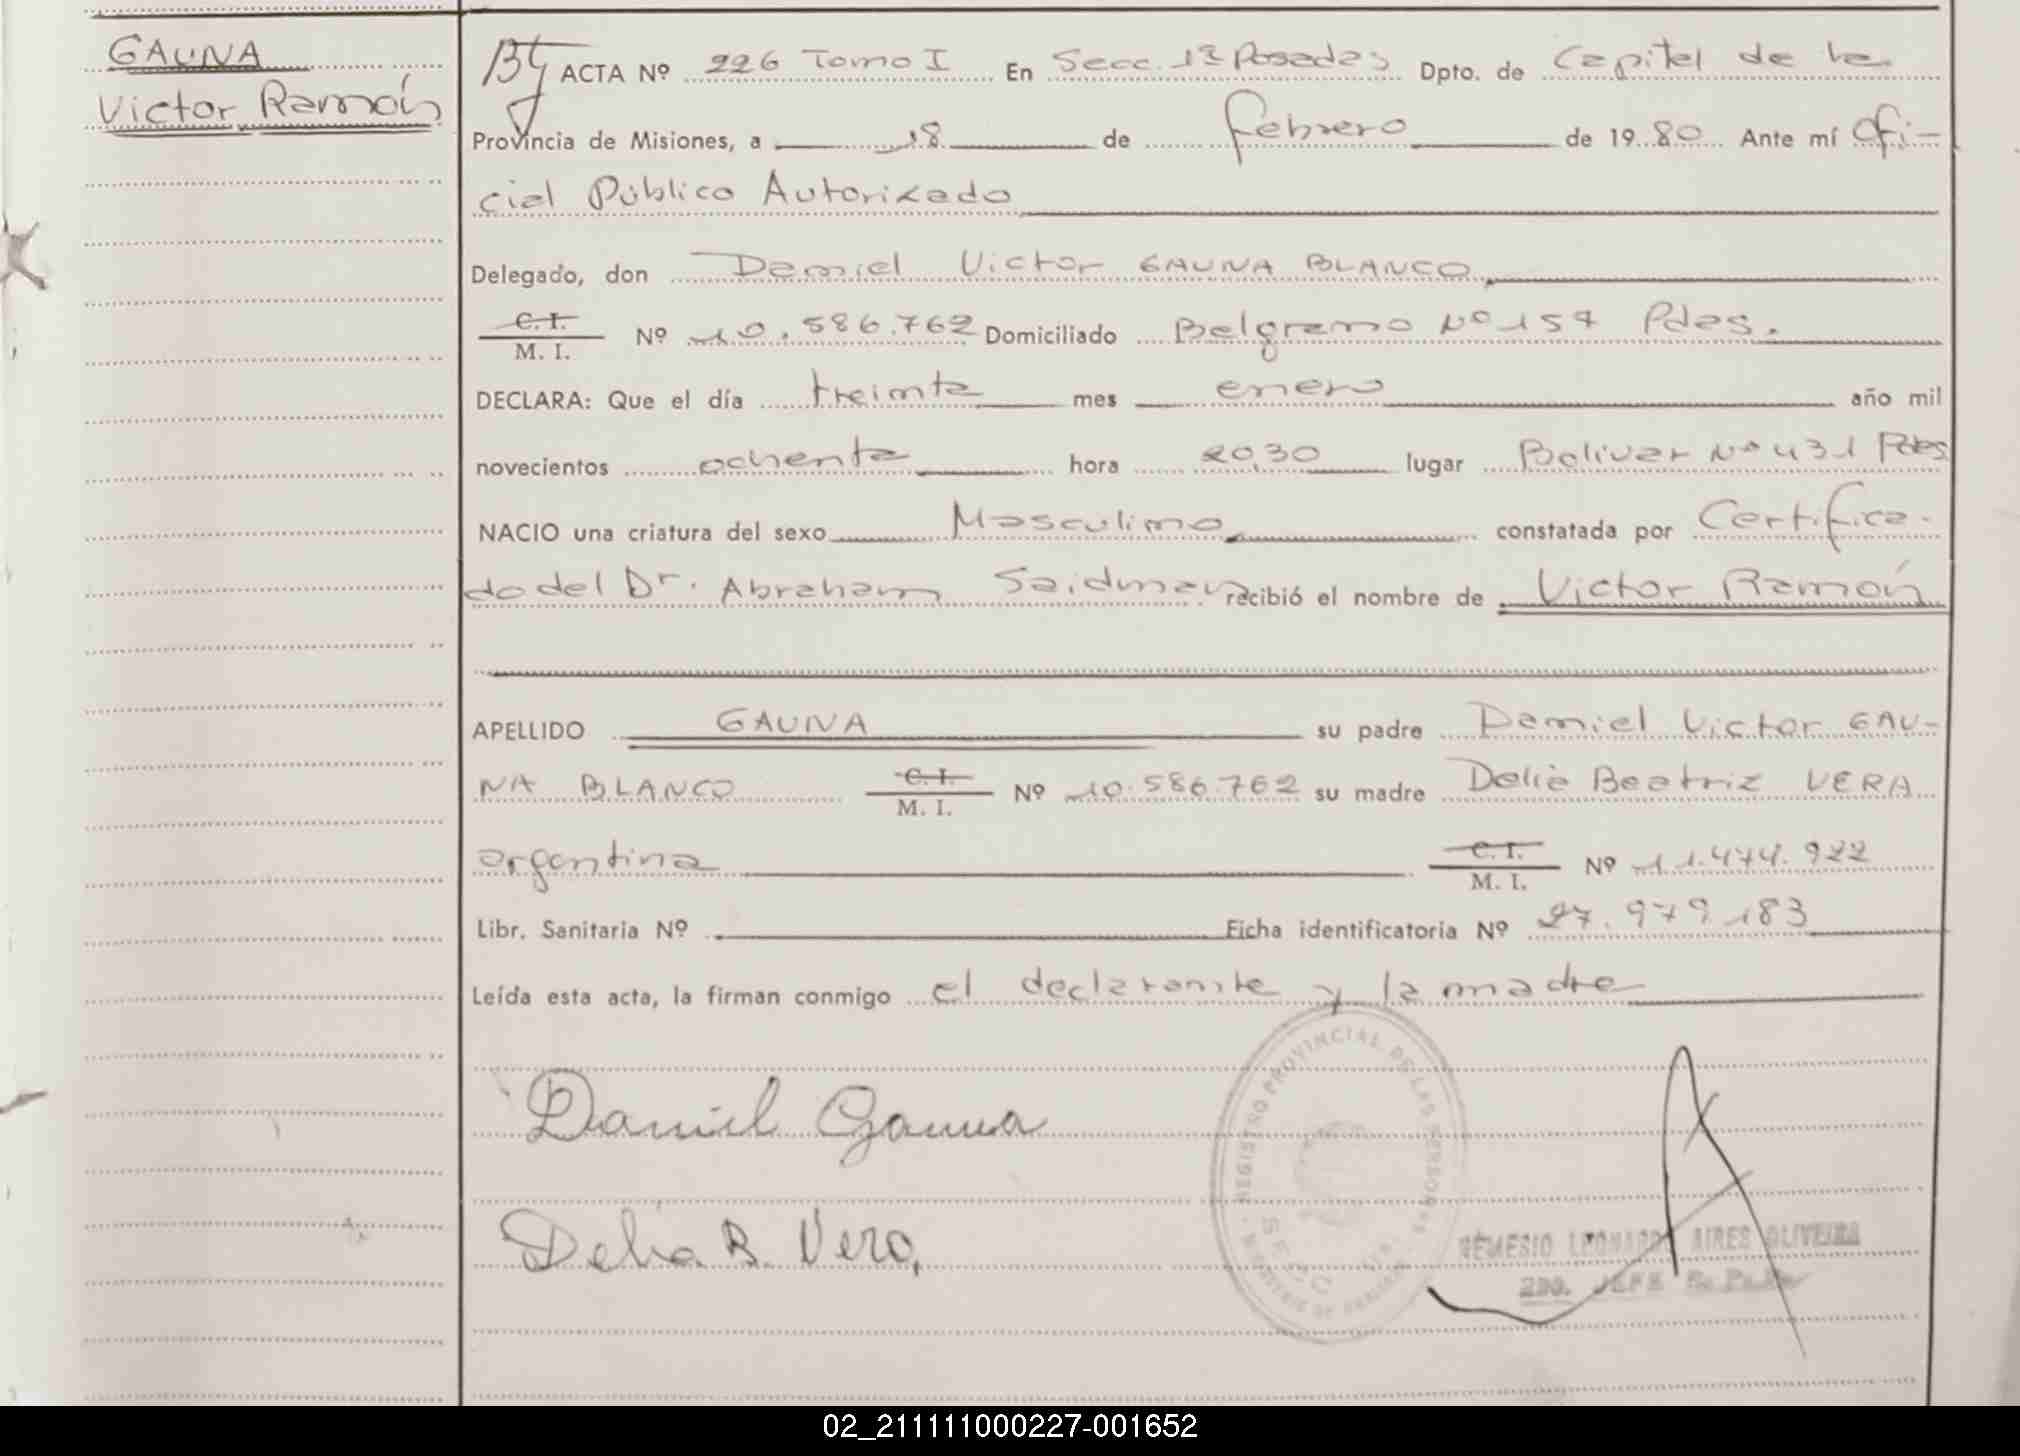 GAUNA
Victor Ramón
ACTA Nº 226 Tomo I En Secc. 1ª Posadas Dpto. de Capital de la
Provincia de Misiones, a 18 de febrero de 1980 Ante mí Ofi-
cial Público Autorizado
Delegado, don Daniel Victor GAUNA BLANCO
C. I.
M. I. Nº 10.586.762 Domiciliado Belgrano Nº 157 Pdas.
DECLARA: Que el día treinta mes enero año mil
novecientos ochenta hora 20,30 lugar Bolivar Nº 431 Pdas
NACIO una criatura del sexo Masculino constatada por Certifica-
do del Dr. Abraham Saidman recibió el nombre de Victor Ramón
APELLIDO GAUNA su padre Daniel Victor GAU-
NA BLANCO C. I. M. I. Nº 10.586.762 su madre Delia Beatriz VERA
argentina C. I. M. I. Nº 11.474.922
Libr. Sanitaria Nº Ficha identificatoria Nº 27.979.183
Leída esta acta, la firman conmigo el declarante y la madre
REGISTRO PROVINCIAL DE LAS PERSONAS
Daniel Gauna
Delia B. Vera
NEMESIO LEONARDO AIRES OLIVEIRA
2DO. JEFE
02_211111000227-001652